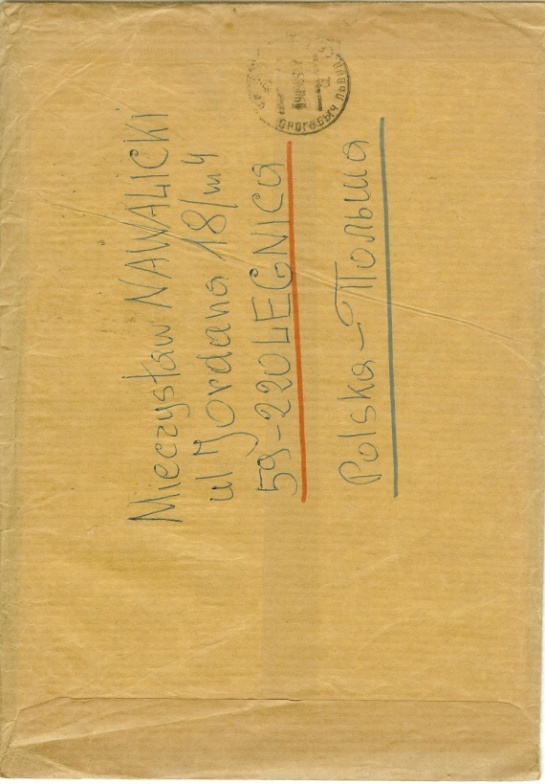 Mieczysław NAWALICKI
ul Jordana 18/m 4
59-220 LEGNICA
Polska - Польша